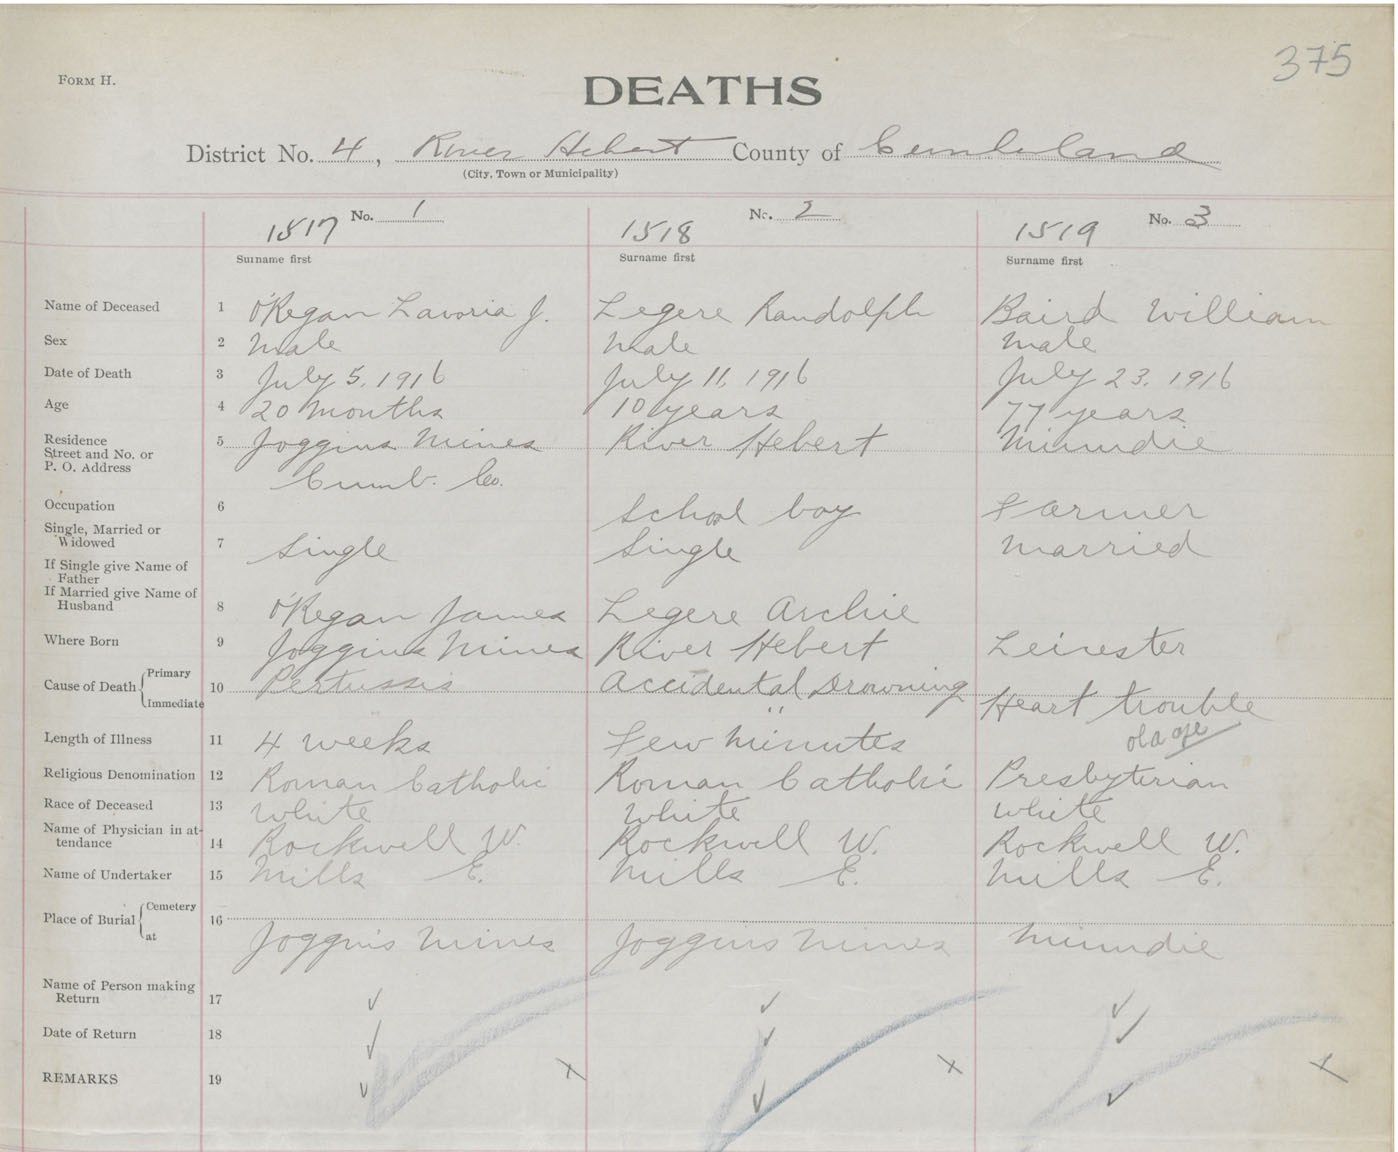 375
FORM H.
DEATHS
District No. 4, River Hebert County of Cumberland
(City, Town or Municipality)
No. 1 No. 2 No. 3
1517 1518 1519
Surname first Surname first Surname first
Name of Deceased 1 O'Regan Lavoria J. Legere Randolph Baird William
Sex 2 Male Male Male
Date of Death 3 July 5, 1916 July 11, 1916 July 23, 1916
Age 4 20 months 10 years 77 years
Residence 5 Joggins Mines River Hebert
Street and No. or
P. O. Address Cumb. Co.
Occupation 6 School boy Farmer
Single, Married or
Widowed 7 Single Single Married
If Single give Name of
Father
If Married give Name of
Husband 8 O'Regan James Legere Archie
Where Born 9 Joggins Mines River Hebert Leicester
Cause of Death Primary 10 Pertussis Accidental Drowning Heart trouble
Immediate "
old age
Length of Illness 11 4 weeks Few minutes
Religious Denomination 12 Roman Catholic Roman Catholic Presbyterian
Race of Deceased 13 White White White
Name of Physician in at-
tendance 14 Rockwell W. Rockwell W. Rockwell W.
Name of Undertaker 15 Mills E. Mills E. Mills E.
Place of Burial Cemetery 16
at Joggins Mines Joggins Mines
Name of Person making
Return 17 ✓ ✓ ✓
Date of Return 18 ✓ ✓ ✓
REMARKS 19 ✓ x ✓ x ✓ x